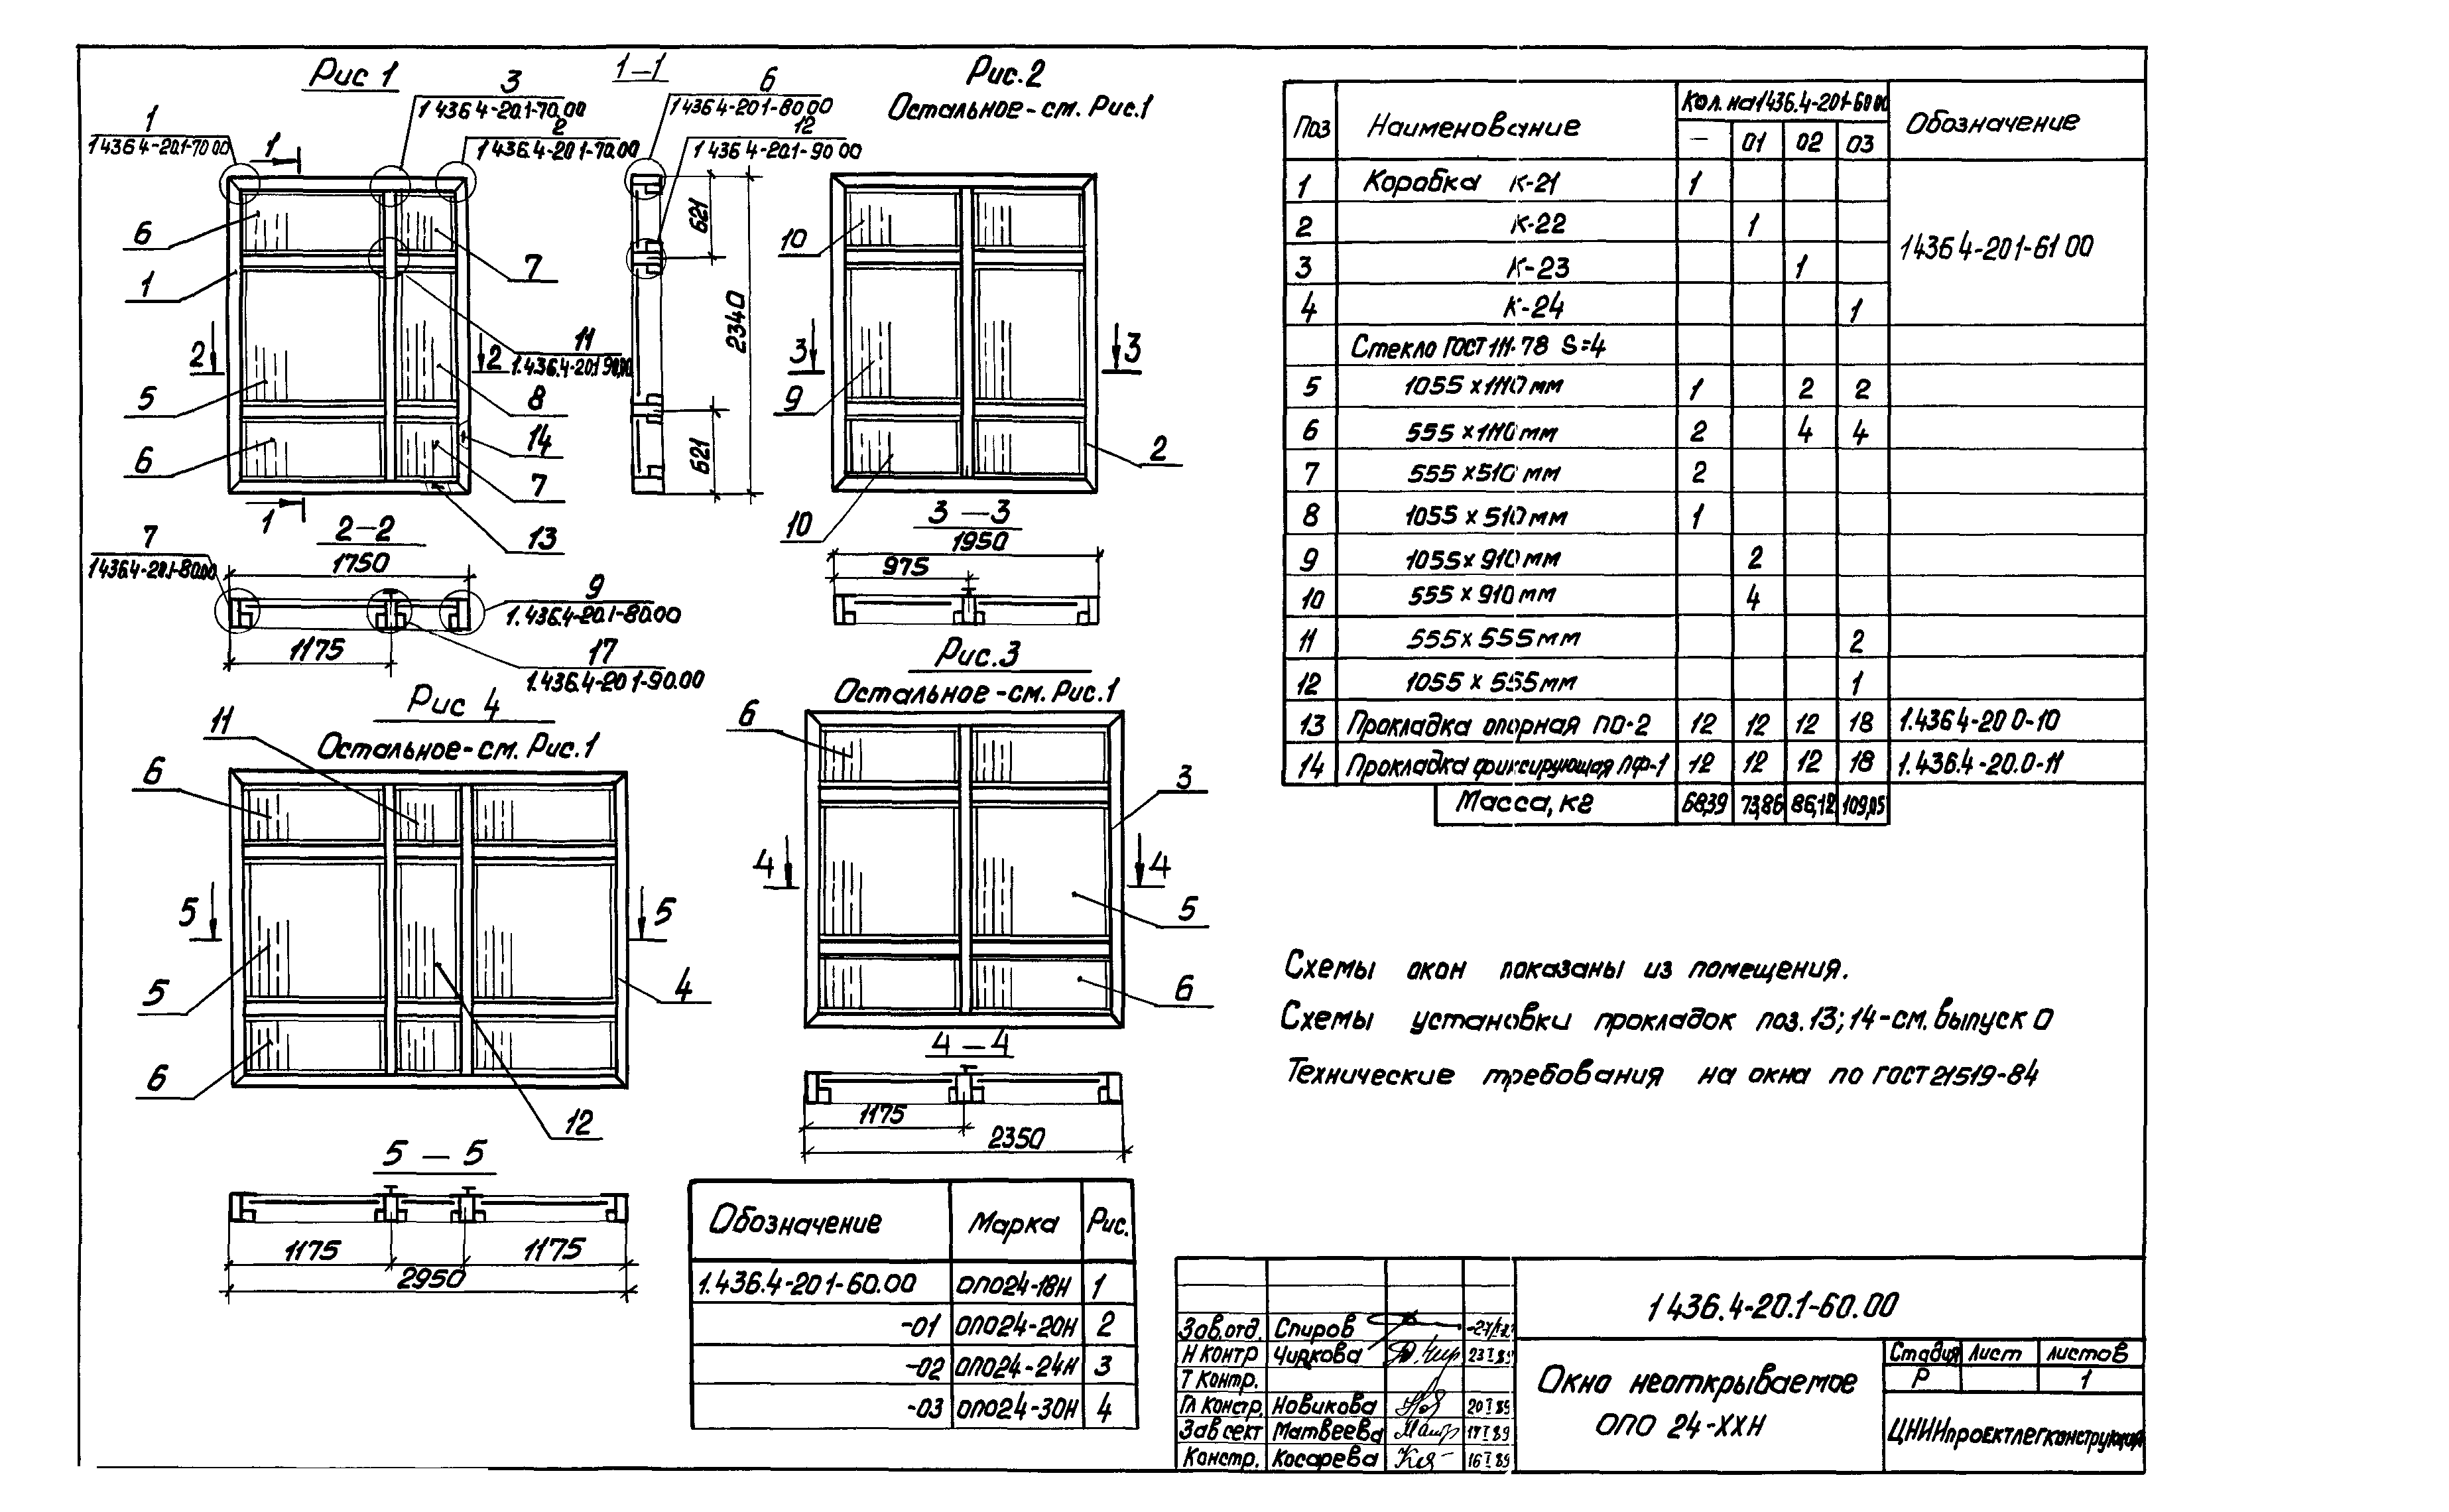 Рис 1
1-1
Рис.2
Остальное-см. Рис.1
1
1 436 4-20.1-70 00
3
1 436 4-20.1-70.00
2
1 436.4-20 1-70.00
6
1 436 4-20 1-80.00
12
1 436 4-20.1-90 00
1
6
1
7
2
2
11
1.436.4-20.1 90.00
5
8
14
6
7
13
1
621
2340
621
10
3
3
9
2
10
2-2
7
1 436.4-20.1-80.00
1750
9
1. 436.4-20.1-80.00
1175
17
1.436.4-20 1-90.00
3-3
1950
975
Рис.3
Остальное-см. Рис.1
6
3
4
4
5
6
4-4
1175
2350
Рис 4
Остальное-см. Рис.1
11
6
5
5
5
4
6
12
5-5
1175
1175
2950
Поз Наименование Кол. на 1436.4-20 1-60 00 Обозначение
- 01 02 03
1 Коробка К-21 1
2 К-22 1
1 436 4-20 1-61 00
3 К-23 1
4 К-24 1
Стекло ГОСТ 111-78 S=4
5 1055 х 1110 мм 1 2 2
6 555 х 1110 мм 2 4 4
7 555 х 510 мм 2
8 1055 х 510 мм 1
9 1055 х 910 мм 2
10 555 х 910 мм 4
11 555 х 555 мм 2
12 1055 х 555 мм 1
13 Прокладка опорная ПО-2 12 12 12 18 1.436 4-20 0-10
14 Прокладка фиксирующая ПФ-1 12 12 12 18 1.436.4-20.0-11
Масса, кг 68,39 73,86 86,12 109,05
Схемы окон показаны из помещения.
Схемы установки прокладок поз. 13; 14-см. выпуск 0
Технические требования на окна по ГОСТ 21519-84
Обозначение Марка Рис.
1.436.4-20 1-60.00 ОПО24-18Н 1
-01 ОПО24-20Н 2
-02 ОПО24-24Н 3
-03 ОПО24-30Н 4
Зав. отд. Спиров
Н контр Чиркова 23 I 89
Т Контр.
Гл констр. Новикова 20 I 89
Зав сект Матвеева 17 I 89
Констр. Косарева 16 I 89
1 436.4-20.1-60.00
Окно неоткрываемое
ОПО 24-ХХН
Стадия Лист Листов
Р 1
ЦНИИпроектлегконструкция